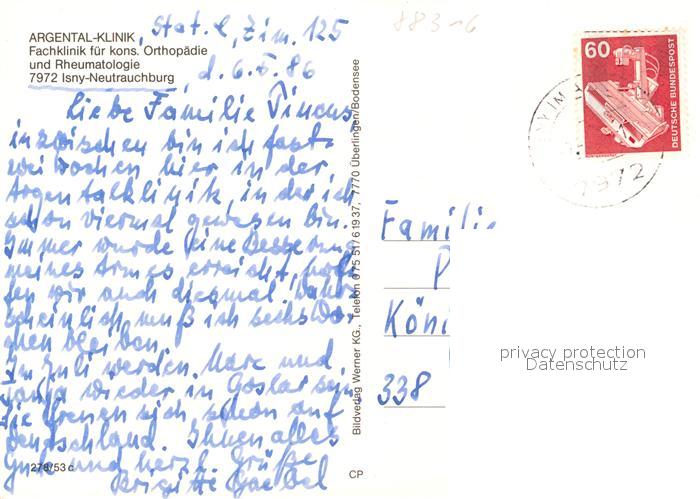 ARGENTAL-KLINIK, Stat. 2, Zim. 125
Fachklinik für kons. Orthopädie
und Rheumatologie
7972 Isny-Neutrauchburg, d. 6.5.86
Liebe Familie Pincus,
inzwischen bin ich fast
zwei Wochen hier in der
Argentalklinik, in der ich
schon viermal gewesen bin.
Immer wurde eine Besserung
meines Armes erreicht, hof-
fen wir auch diesmal. Wahr-
scheinlich muß ich sechs Wo-
chen bleiben.
Im Juli werden Marc und
Tanja wieder in Goslar sein.
Sie freuen sich schon auf
Deutschland. Ihnen alles
Gute und herzl. Grüße
Brigitte Goebel
278/53 c
CP
Bildverlag Werner KG., Telefon 075 51/61937, 7770 Überlingen/Bodensee
883-6
60
DEUTSCHE BUNDESPOST
7972
Famili
P
Köni
338
privacy protection
Datenschutz